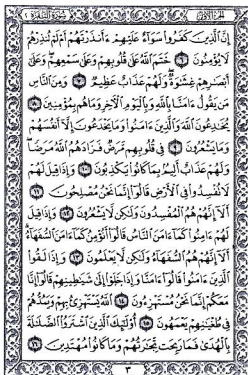 الجُزءُ الأوّلُ سُورَةُ البَقَرَة ٢
إِنَّ ٱلَّذِينَ كَفَرُوا۟ سَوَآءٌ عَلَيْهِمْ ءَأَنذَرْتَهُمْ أَمْ لَمْ تُنذِرْهُمْ
لَا يُؤْمِنُونَ ٦ خَتَمَ ٱللَّهُ عَلَىٰ قُلُوبِهِمْ وَعَلَىٰ سَمْعِهِمْ وَعَلَىٰٓ
أَبْصَٰرِهِمْ غِشَٰوَةٌ وَلَهُمْ عَذَابٌ عَظِيمٌ ٧ وَمِنَ ٱلنَّاسِ
مَن يَقُولُ ءَامَنَّا بِٱللَّهِ وَبِٱلْيَوْمِ ٱلْءَاخِرِ وَمَا هُم بِمُؤْمِنِينَ ٨
يُخَٰدِعُونَ ٱللَّهَ وَٱلَّذِينَ ءَامَنُوا۟ وَمَا يَخْدَعُونَ إِلَّآ أَنفُسَهُمْ
وَمَا يَشْعُرُونَ ٩ فِى قُلُوبِهِم مَّرَضٌ فَزَادَهُمُ ٱللَّهُ مَرَضًا
وَلَهُمْ عَذَابٌ أَلِيمٌۢ بِمَا كَانُوا۟ يَكْذِبُونَ ١٠ وَإِذَا قِيلَ لَهُمْ
لَا تُفْسِدُوا۟ فِى ٱلْأَرْضِ قَالُوٓا۟ إِنَّمَا نَحْنُ مُصْلِحُونَ ١١
أَلَآ إِنَّهُمْ هُمُ ٱلْمُفْسِدُونَ وَلَٰكِن لَّا يَشْعُرُونَ ١٢ وَإِذَا قِيلَ
لَهُمْ ءَامِنُوا۟ كَمَآ ءَامَنَ ٱلنَّاسُ قَالُوٓا۟ أَنُؤْمِنُ كَمَآ ءَامَنَ ٱلسُّفَهَآءُ
أَلَآ إِنَّهُمْ هُمُ ٱلسُّفَهَآءُ وَلَٰكِن لَّا يَعْلَمُونَ ١٣ وَإِذَا لَقُوا۟
ٱلَّذِينَ ءَامَنُوا۟ قَالُوٓا۟ ءَامَنَّا وَإِذَا خَلَوْا۟ إِلَىٰ شَيَٰطِينِهِمْ قَالُوٓا۟ إِنَّا
مَعَكُمْ إِنَّمَا نَحْنُ مُسْتَهْزِءُونَ ١٤ ٱللَّهُ يَسْتَهْزِئُ بِهِمْ وَيَمُدُّهُمْ
فِى طُغْيَٰنِهِمْ يَعْمَهُونَ ١٥ أُو۟لَٰٓئِكَ ٱلَّذِينَ ٱشْتَرَوُا۟ ٱلضَّلَٰلَةَ
بِٱلْهُدَىٰ فَمَا رَبِحَت تِّجَٰرَتُهُمْ وَمَا كَانُوا۟ مُهْتَدِينَ ١٦
٣